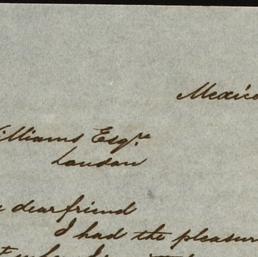 Mexico
illiams Esqre
London
dear friend
I had the pleasur